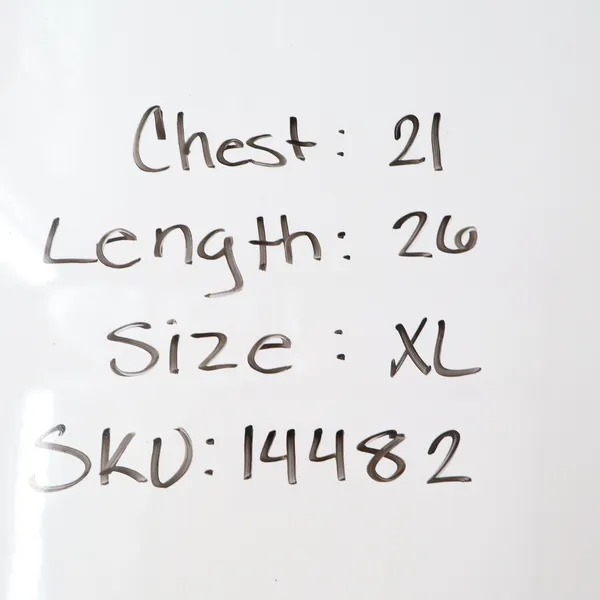 Chest: 21
Length: 26
Size: XL
SKU: 14482